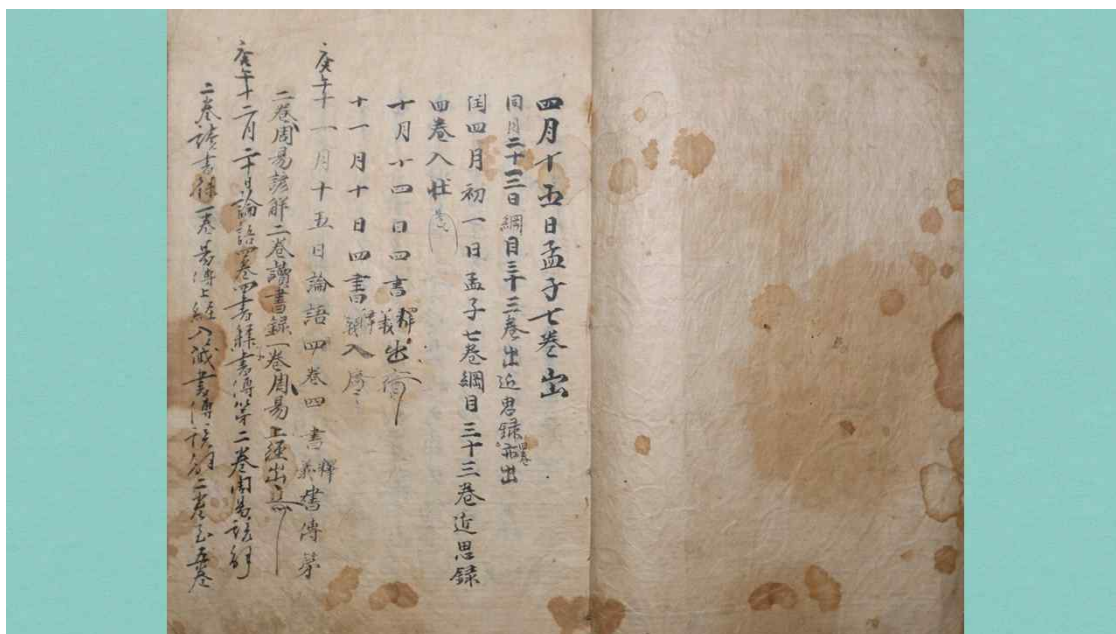 四月十五日孟子七巻出
同月二十三日綱目三十三巻出近思録四巻亦出
閏四月初一日孟子七巻綱目三十三巻近思録
四巻入
十月十四日四書釋義出
十一月十日四書釋義入
庚午十一月十五日論語四巻四書釋義書傳第
二巻周易諺解二巻讀書録一巻周易上經出
庚午十二月二十日論語四巻四書釋書傳第二巻周易諺解
二巻讀書録一巻易傳上經入藏書傳諺解二巻至五巻